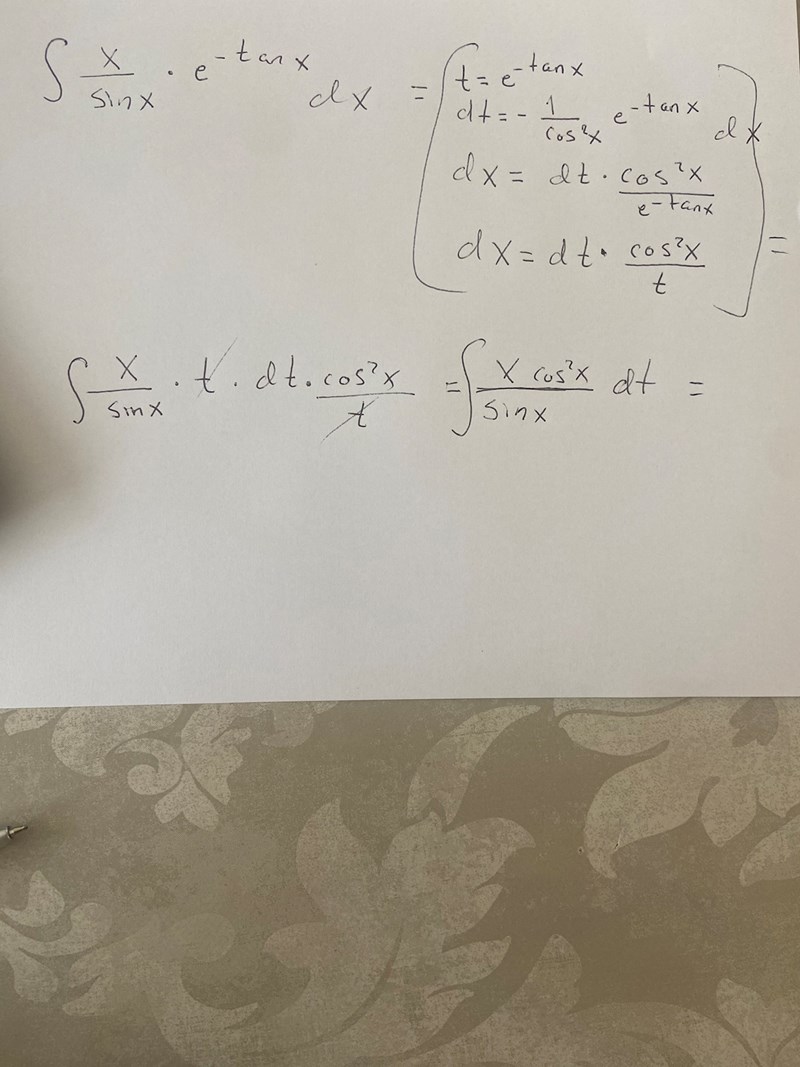 ∫ x/sinx · e^(-tanx) dx = ( t = e^(-tanx)
dt = - 1/cos²x e^(-tanx) dx
dx = dt · cos²x/e^(-tanx)
dx = dt · cos²x/t ) =
∫ x/sinx · t · dt · cos²x/t = ∫ x cos²x/sinx dt =